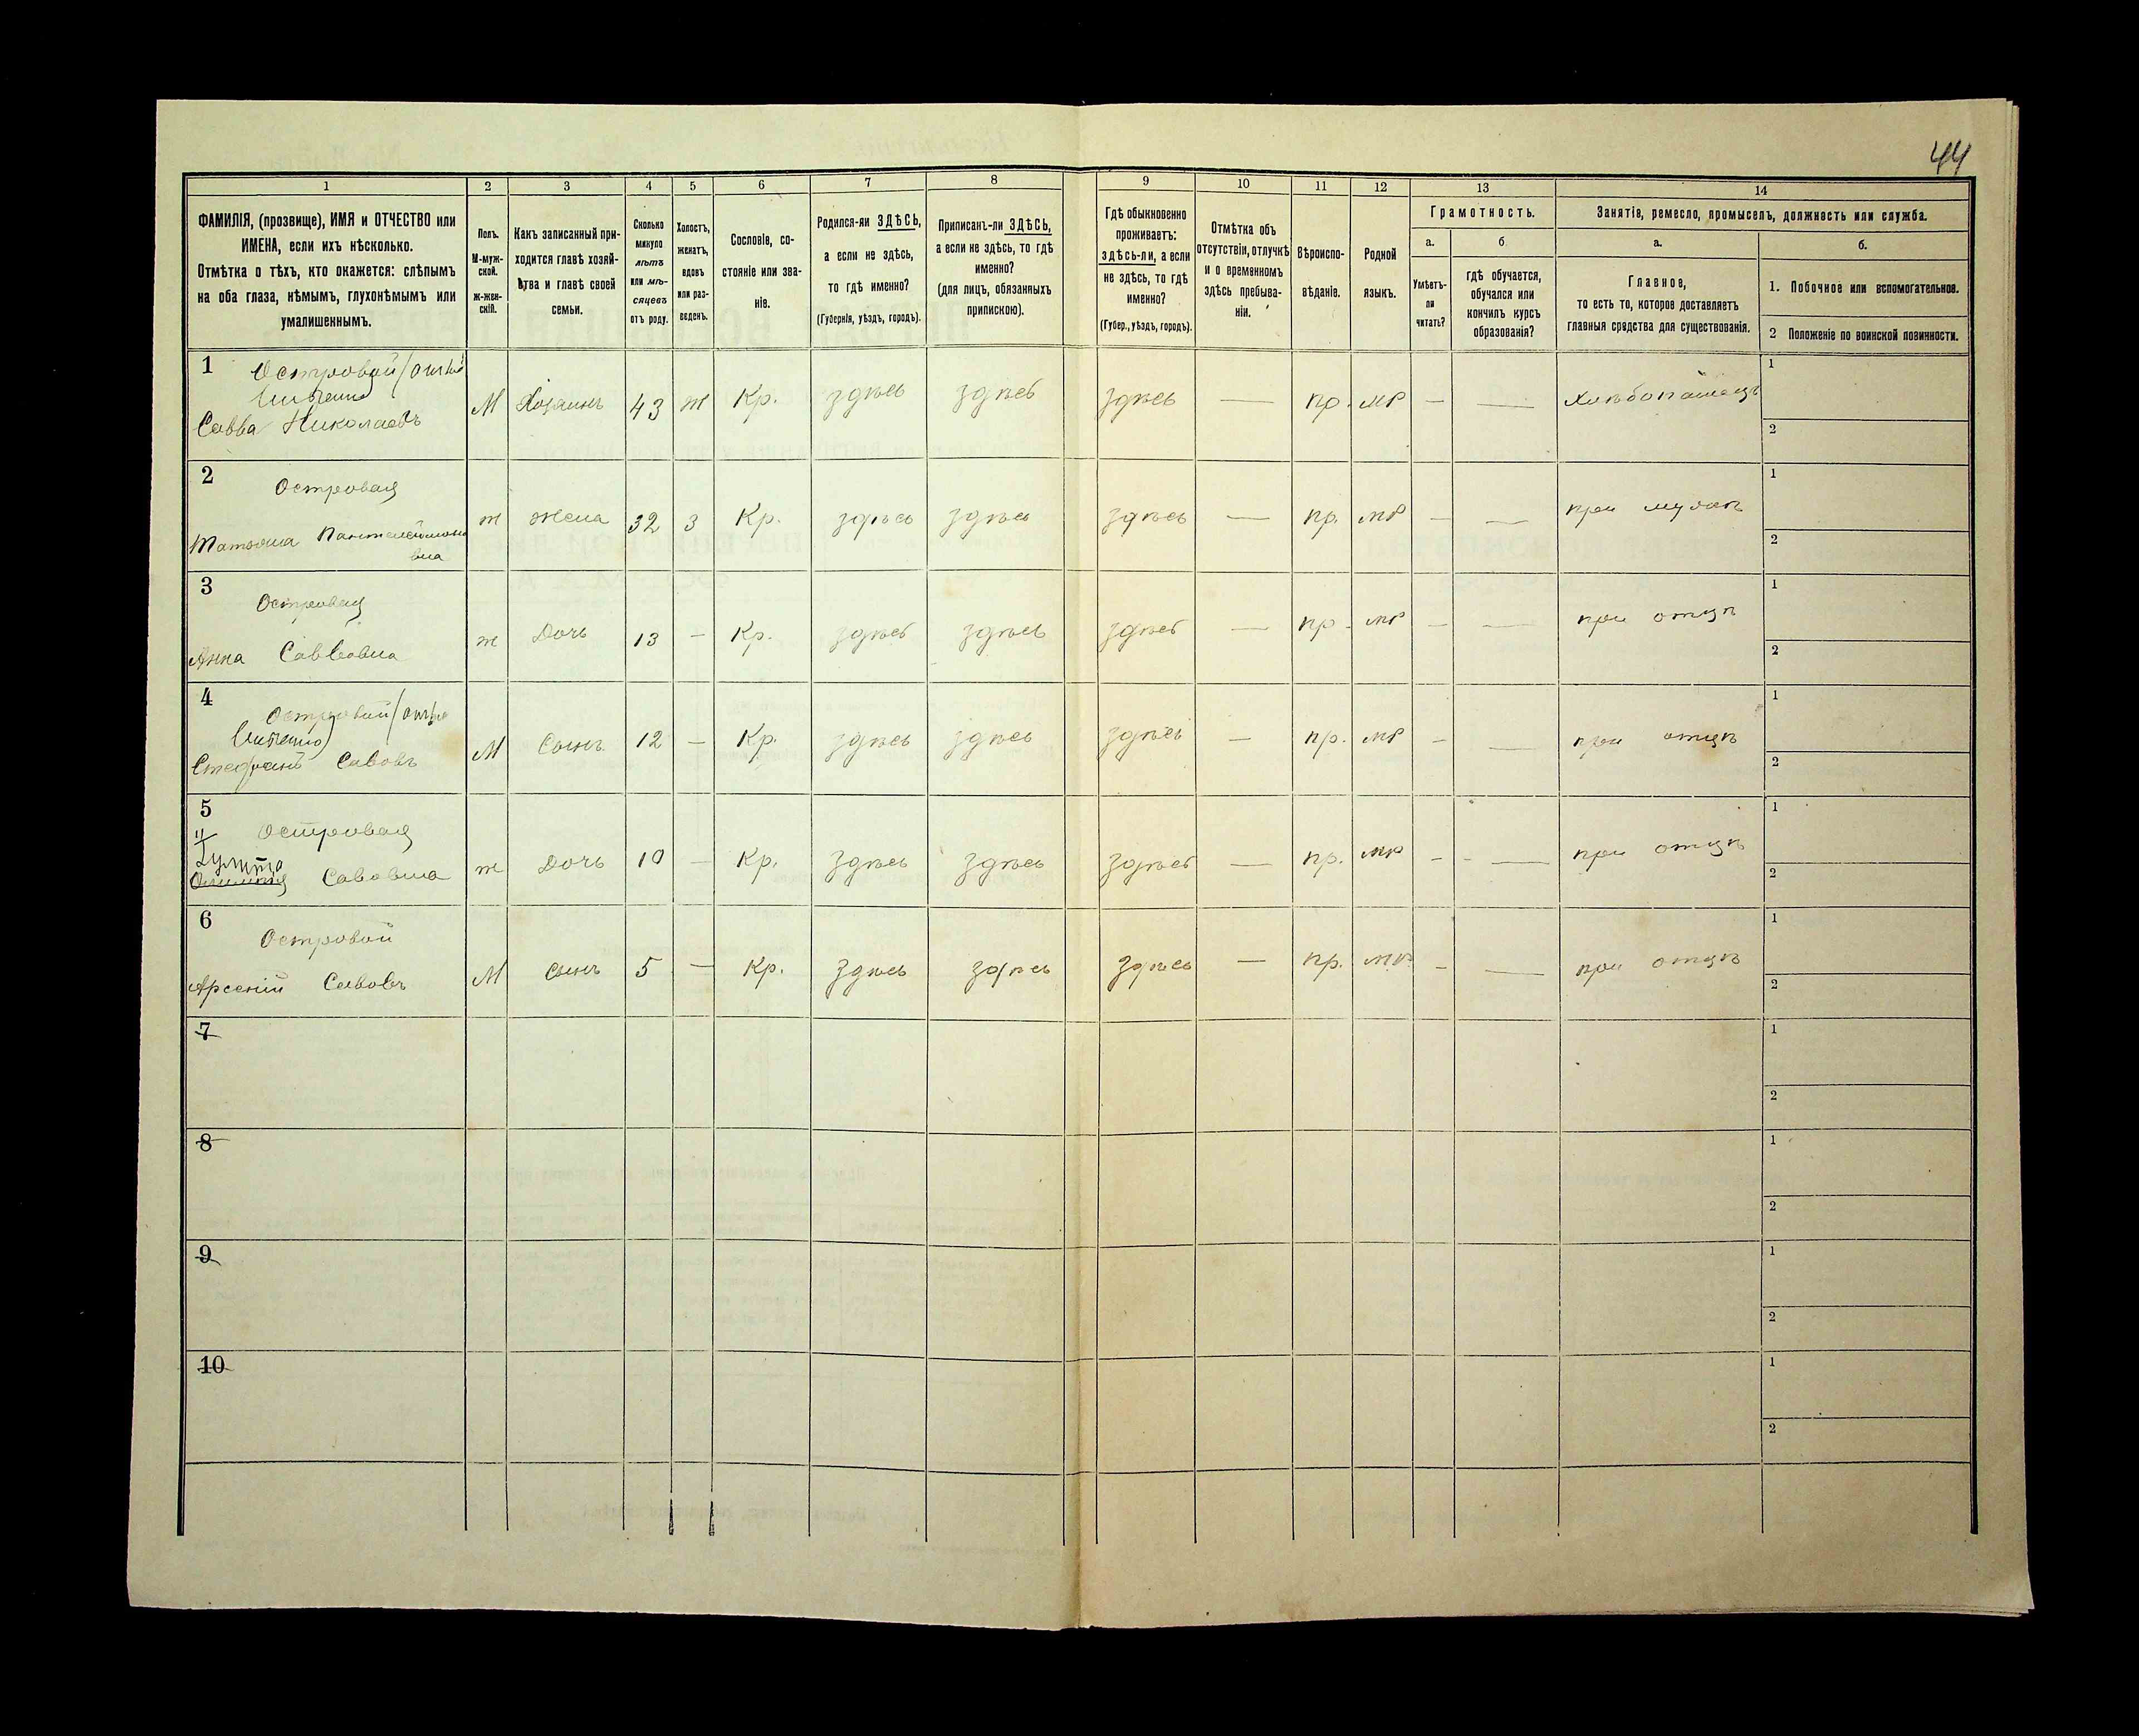 44
1 2 3 4 5 6 7 8 9 10 11 12 13 14
ФАМИЛІЯ, (прозвище), ИМЯ и ОТЧЕСТВО или
ИМЕНА, если ихъ нѣсколько.
Отмѣтка о тѣхъ, кто окажется: слѣпымъ
на оба глаза, нѣмымъ, глухонѣмымъ или
умалишеннымъ.
Полъ.
М-муж-
ской.
ж-жен-
скій.
Какъ записанный при-
ходится главѣ хозяй-
ства и главѣ своей
семьи.
Сколько
минуло
лѣтъ
или мѣ-
сяцевъ
отъ роду.
Холостъ,
женатъ,
вдовъ
или раз-
веденъ.
Сословіе, со-
стояніе или зва-
ніе.
Родился-ли ЗДѢСЬ,
а если не здѣсь,
то гдѣ именно?
(Губернія, уѣздъ, городъ).
Приписанъ-ли ЗДѢСЬ,
а если не здѣсь, то гдѣ
именно?
(для лицъ, обязанныхъ
припискою).
Гдѣ обыкновенно
проживаетъ:
здѣсь-ли, а если
не здѣсь, то гдѣ
именно?
(Губер., уѣздъ, городъ).
Отмѣтка объ
отсутствіи, отлучкѣ
и о временномъ
здѣсь пребыва-
ніи.
Вѣроиспо-
вѣданіе.
Родной
языкъ.
Грамотность.
а. б
Умѣетъ-
ли
читать?
гдѣ обучается,
обучался или
кончилъ курсъ
образованія?
Занятіе, ремесло, промыселъ, должность или служба.
а. б.
Главное,
то есть то, которое доставляетъ
главныя средства для существованія.
1. Побочное или вспомогательное.
2 Положеніе по воинской повинности.
1 Островой
Савва Николаевъ М Хозяинъ 43 ж Кр. здѣсь здѣсь здѣсь — пр. мр — — Хлѣбопашецъ 1
2
2 Островая
Татьяна Пантелеймоно
вна ж жена 32 з Кр. здѣсь здѣсь здѣсь — пр. мр — — при мужѣ 1
2
3 Островая
Анна Саввовна ж Дочь 13 — Кр. здѣсь здѣсь здѣсь — пр. мр — — при отцѣ 1
2
4 Островой
Стефанъ Савовъ М Сынъ 12 — Кр. здѣсь здѣсь здѣсь — пр. мр — — при отцѣ 1
2
5 Островая
Савовна ж Дочь 10 — Кр. здѣсь здѣсь здѣсь — пр. мр — — при отцѣ 1
2
6 Островой
Арсеній Савовъ М сынъ 5 — Кр. здѣсь здѣсь здѣсь — пр. мр — — при отцѣ 1
2
7 1
2
8 1
2
9 1
2
10 1
2